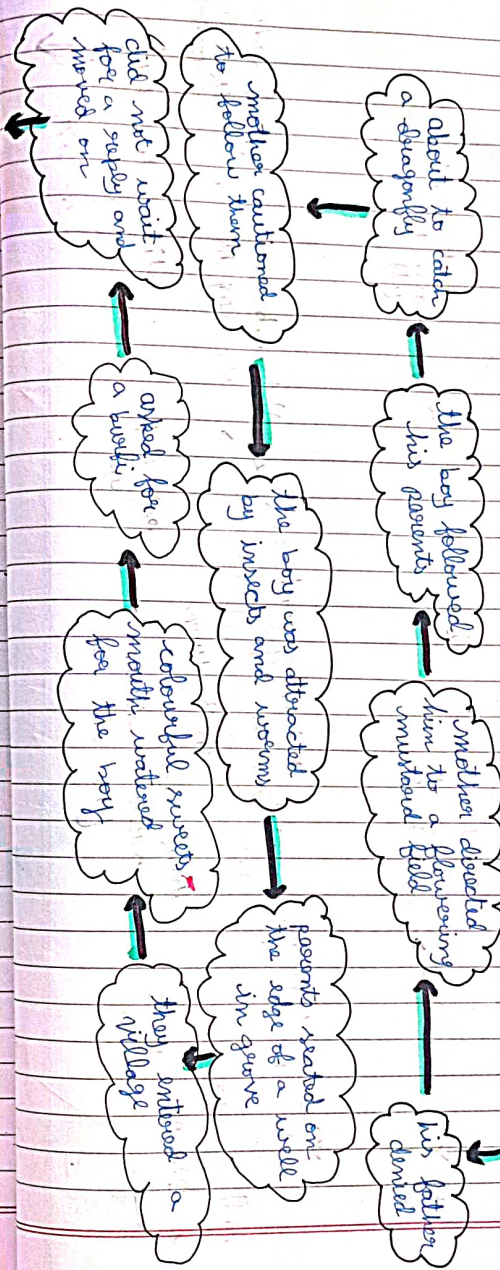 his father
denied
mother directed
him to a flowering
mustard field
the boy followed
his parents
about to catch
a dragonfly
mother cautioned
to follow them
the boy was attracted
by insects and worms
parents seated on
the edge of a well
in grove
they entered a
village
colourful sweets
mouth watered
for the boy
asked for
a burfi
did not wait
for a reply and
moved on